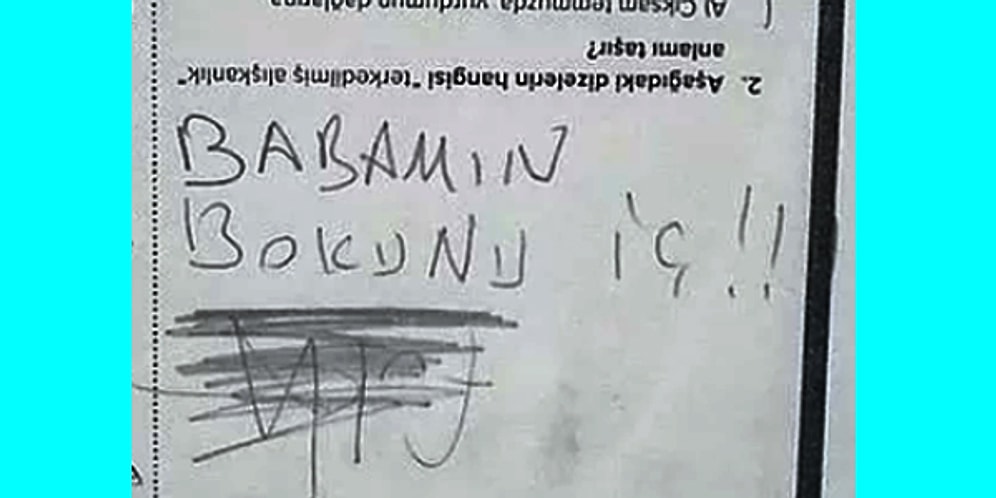 A) Çıksam temmuzda yurdumun dağlarına
anlamı taşır?
2. Aşağıdaki dizelerin hangisi "terkedilmiş alışkanlık"
BABAMIN
BOKUNU İÇ !!